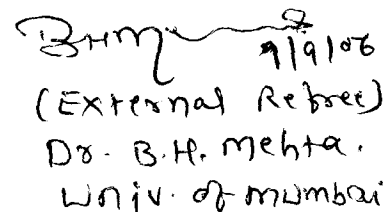 9/9/06
(External Refree)
Dr. B.H. Mehta.
Univ. of mumbai